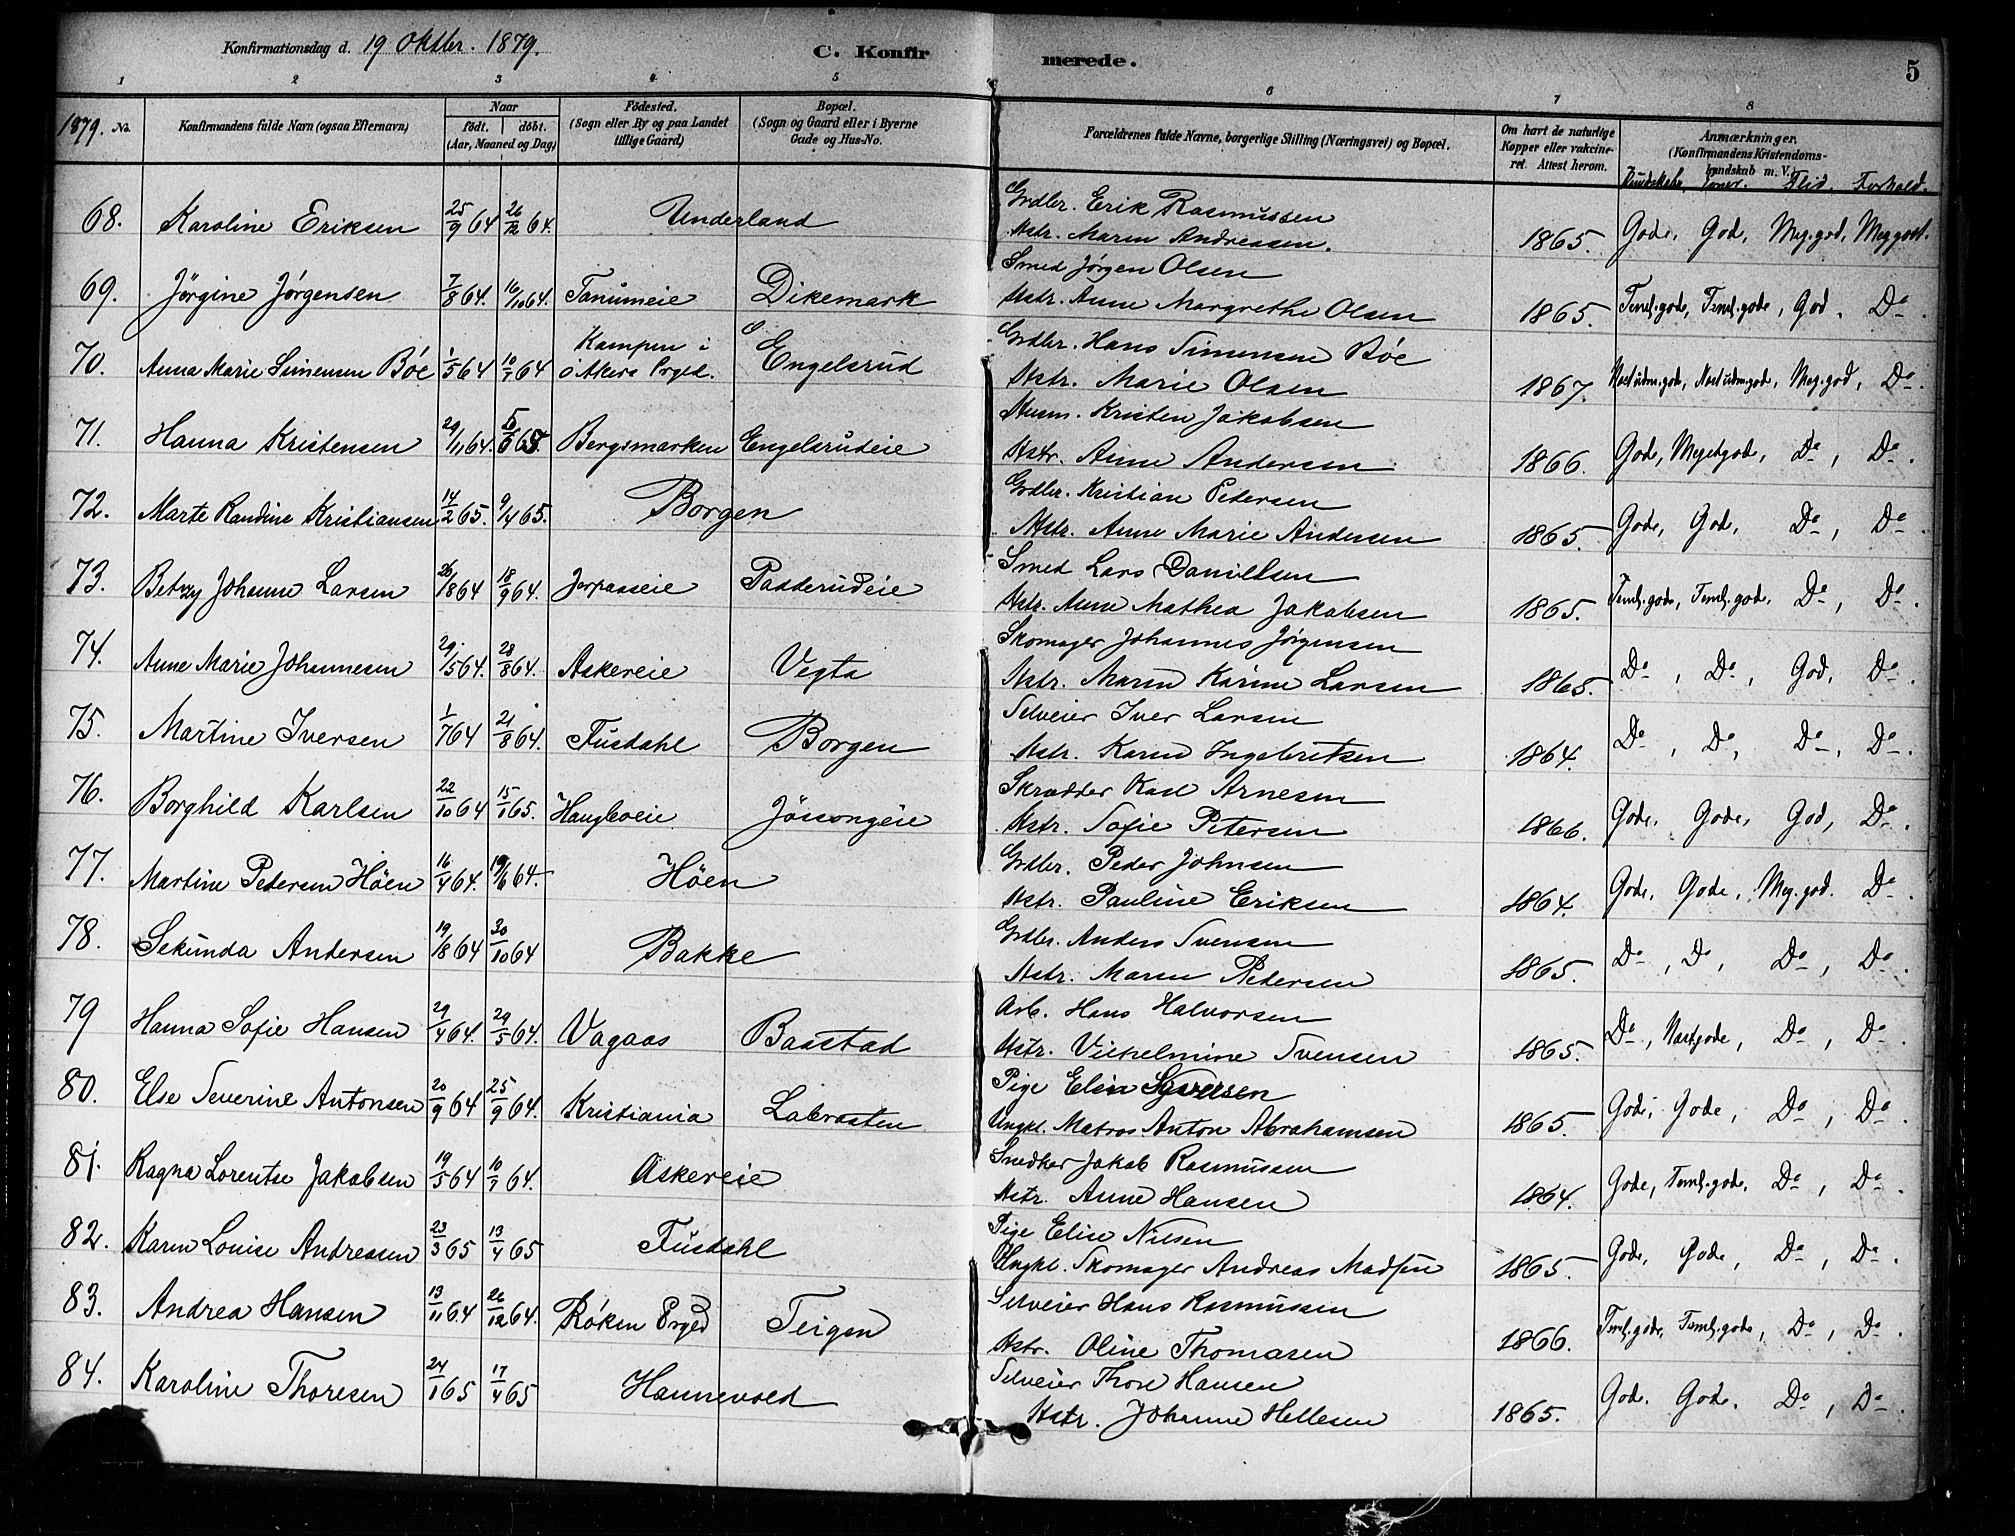 Konfirmationsdag d. 19 Oktbr. 1879.
C. Konfirmerede.
5
1 2 3 4 5 6 7 8
1879. No.
Konfirmandens fulde Navn (ogsaa Efternavn)
Naar
født. | døbt.
(Aar, Maaned og Dag)
Födested.
(Sogn eller By og paa Landet
tillige Gaard)
Bopæl.
(Sogn og Gaard eller i Byerne
Gade og Hus-No.
Forældrenes fulde Navne, borgerlige Stilling (Næringsvei) og Bopæl.
Om havt de naturlige
Kopper eller vakcine-
ret. Attest herom.
Anmærkninger.
(Konfirmandens Kristendoms-
kundskab m. V.)
Flid. Forhold.
68. Karoline Eriksen 25/9 64 26/12 64. Underland Grdbr. Erik Rasmussen
Hstr. Maren Andressen. 1865. Gode, God, Meg.god, Meg godt.
69. Jörgine Jörgensen 7/8 64. 16/10 64. Tanumeie Dikemark Smed Jörgen Olsen
Hstr. Anne Margrethe Olsen 1865. Teml.gode, Teml.gode, God, Do.
70. Anna Marie Simensen Böe 1/5 64 10/7 64 Kampen i
Akers Prgd. Engelsrud Grdbr. Hans Simensen Böe
Hstr. Marie Olsen 1867. Næst udm.gode, Næst udm.god, Meg.god, Do.
71. Hanna Kristensen 29/11 64. Bergsmarken Engelsrudeie Husm. Kristen Jakobsen
Hstr. Anne Andersen 1866. Gode, Megetgode, Do, Do.
72. Marte Randine Kristiansen 14/2 65. 9/4 65. Borgen Grdbr. Kristian Pedersen
Hstr. Anne Marie Andersen 1865. Gode, God, Do, Do.
73. Betzy Johanne Larsen 26/1 864 18/9 64. Jarpaaseie Padderudeie Smed Lars Daniellsen
Hstr. Anne Mathea Jakobsen 1865. Teml.gode, Teml.god, Do, Do.
74. Anne Marie Johannesen 29/5 64. 28/8 64. Askereie Vegta Skomager Johannes Jörgensen
Hstr. Maren Karine Larsen 1865. Do, Do, God, Do.
75. Martine Iversen 1/7 64 21/8 64. Fusdahl Borgen Selveier Iver Larsen
Hstr. Karen Ingebretsen 1864. Do, Do, Do, Do.
76. Borghild Karlsen 22/10 64 15/1 65. Haugboeie Jössongeie Skrædder Karl Arnesen
Hstr. Sofie Petersen 1866. Gode, Gode, God, Do.
77. Martine Pedersen Höen 16/4 64. 19/6 64. Höen Grdbr. Peder Johnsen
Hstr. Pauline Eriksen 1864. Gode, Gode, Meg.god. Do.
78. Sekunda Andersen 19/8 64 30/10 64 Bakke Grdbr. Anders Svensen
Hstr. Maren Pedersen 1865. Do, Do, Do, Do.
79 Hanna Sofie Hansen 29/4 64. 29/5 64. Vagaas Baastad Arb. Hans Halvorsen
Hstr. Vilhelmine Svensen 1865. Do, Næstgode, Do, Do.
80. Else Severine Antonsen 20/9 64 25/9 64. Kristiania Labraaten Pige Elen Syversen
Ungkl. Matros Anton Abrahamsen 1865. Gode, Gode, Do, Do.
81. Ragna Lorentse Jakobsen 19/5 64 10/7 64. Askereie Snedker Jakob Rasmussen
Hstr. Anne Hansen 1864. Gode, Teml.gode, Do, Do.
82. Karen Louise Andreasen 23/3 65 13/4 65 Fusdahl Pige Elise Nilsen
Ungkl. Skomager Andreas Madsen 1865. Gode, Gode, Do, Do.
83. Andrea Hansen 13/11 64 26/12 64. Röken Prgd Teigen Selveier Hans Rasmussen
Hstr. Oline Thomasen 1866. Teml.gode, Teml.gode, Do, Do.
84. Karoline Thoresen 24/1 65 17/4 65 Hannevold Selveier Thore Hansen
Hstr. Johanne Hellesen 1865. Gode. Gode. Do, Do.